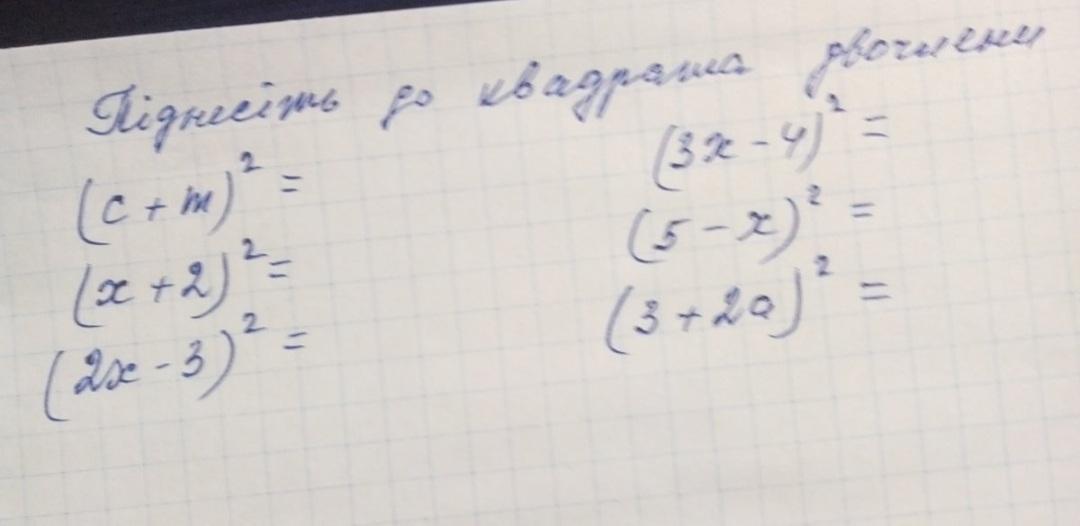 Піднесіть до квадрата двочлени
(c + m)² =
(x + 2)² =
(2x - 3)² =
(3x - 4)² =
(5 - x)² =
(3 + 2a)² =